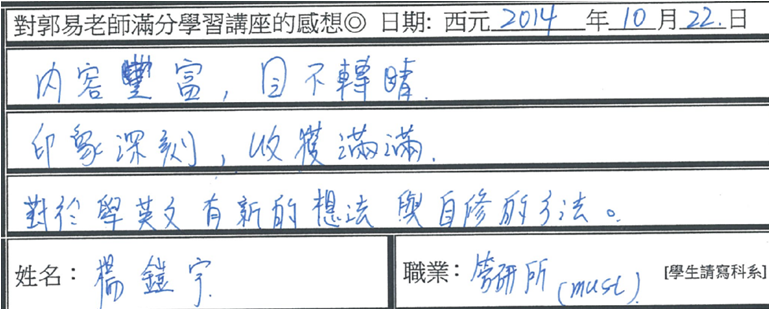 對郭易老師滿分學習講座的感想◎ 日期: 西元 2014 年 10 月 22. 日
內容豐富，目不轉睛.
印象深刻，收獲滿滿.
對於學英文有新的想法與自修的方法。
姓名： 楊鎧宇. 職業： 管研所(must). [學生請寫科系]